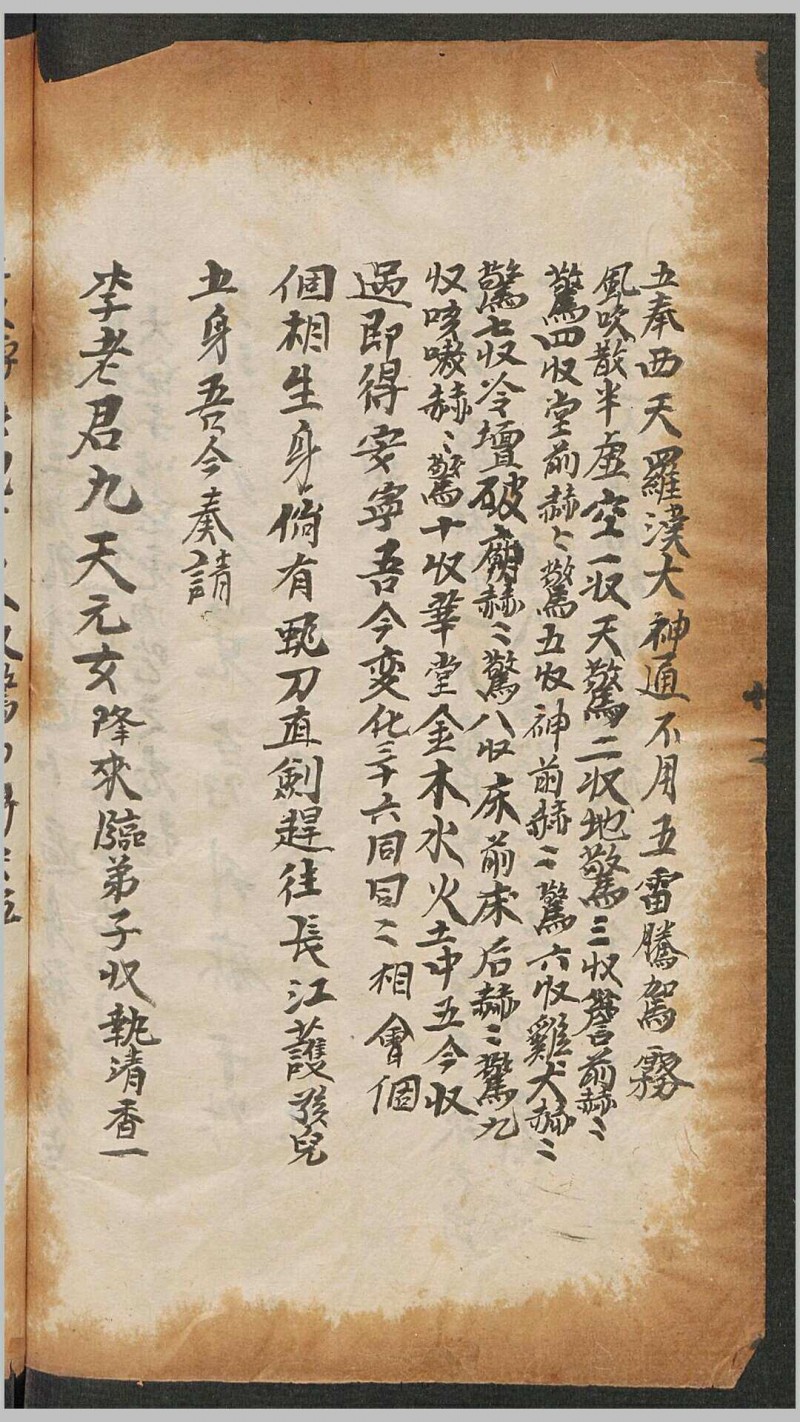 五奉西天羅漢大神通不用五雷騰駕霧
風吹散半虛空一収天驚二収地驚三収簷前赫〻
驚四収堂前赫〻驚五收神前赫〻驚六収雞犬赫〻
驚七収冷壇破廟赫〻驚八収床前床后赫〻驚九
収咳嗽赫〻驚十収華堂金木水火土中五今収
過即得安寧吾今变化三十六同曰〻相會個
個相生身倘有刀直劍趕往長江護孩兒
土身吾今奏請
李老君九天元女降來臨弟子収執清香一